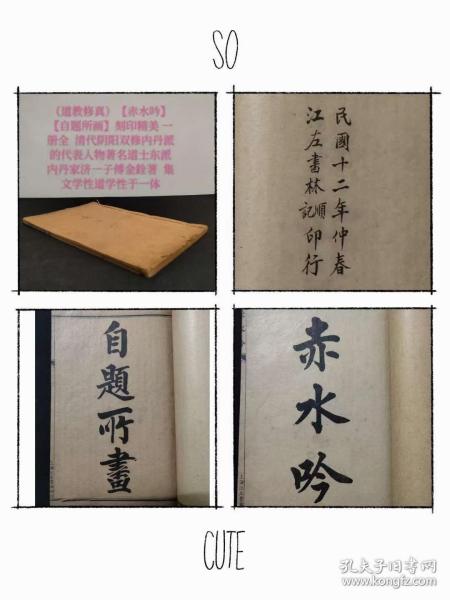 SO
《道教修真》【赤水吟】
【自题所画】刻印精美 一
册全 清代阴阳双修内丹派
的代表人物著名道士东派
内丹家济一子傅金铨著 集
文学性道学性于一体
民國十二年仲春
江左書林順記印行
自題所畫
赤水吟
CUTE
孔夫子旧书网
www.kongfz.com